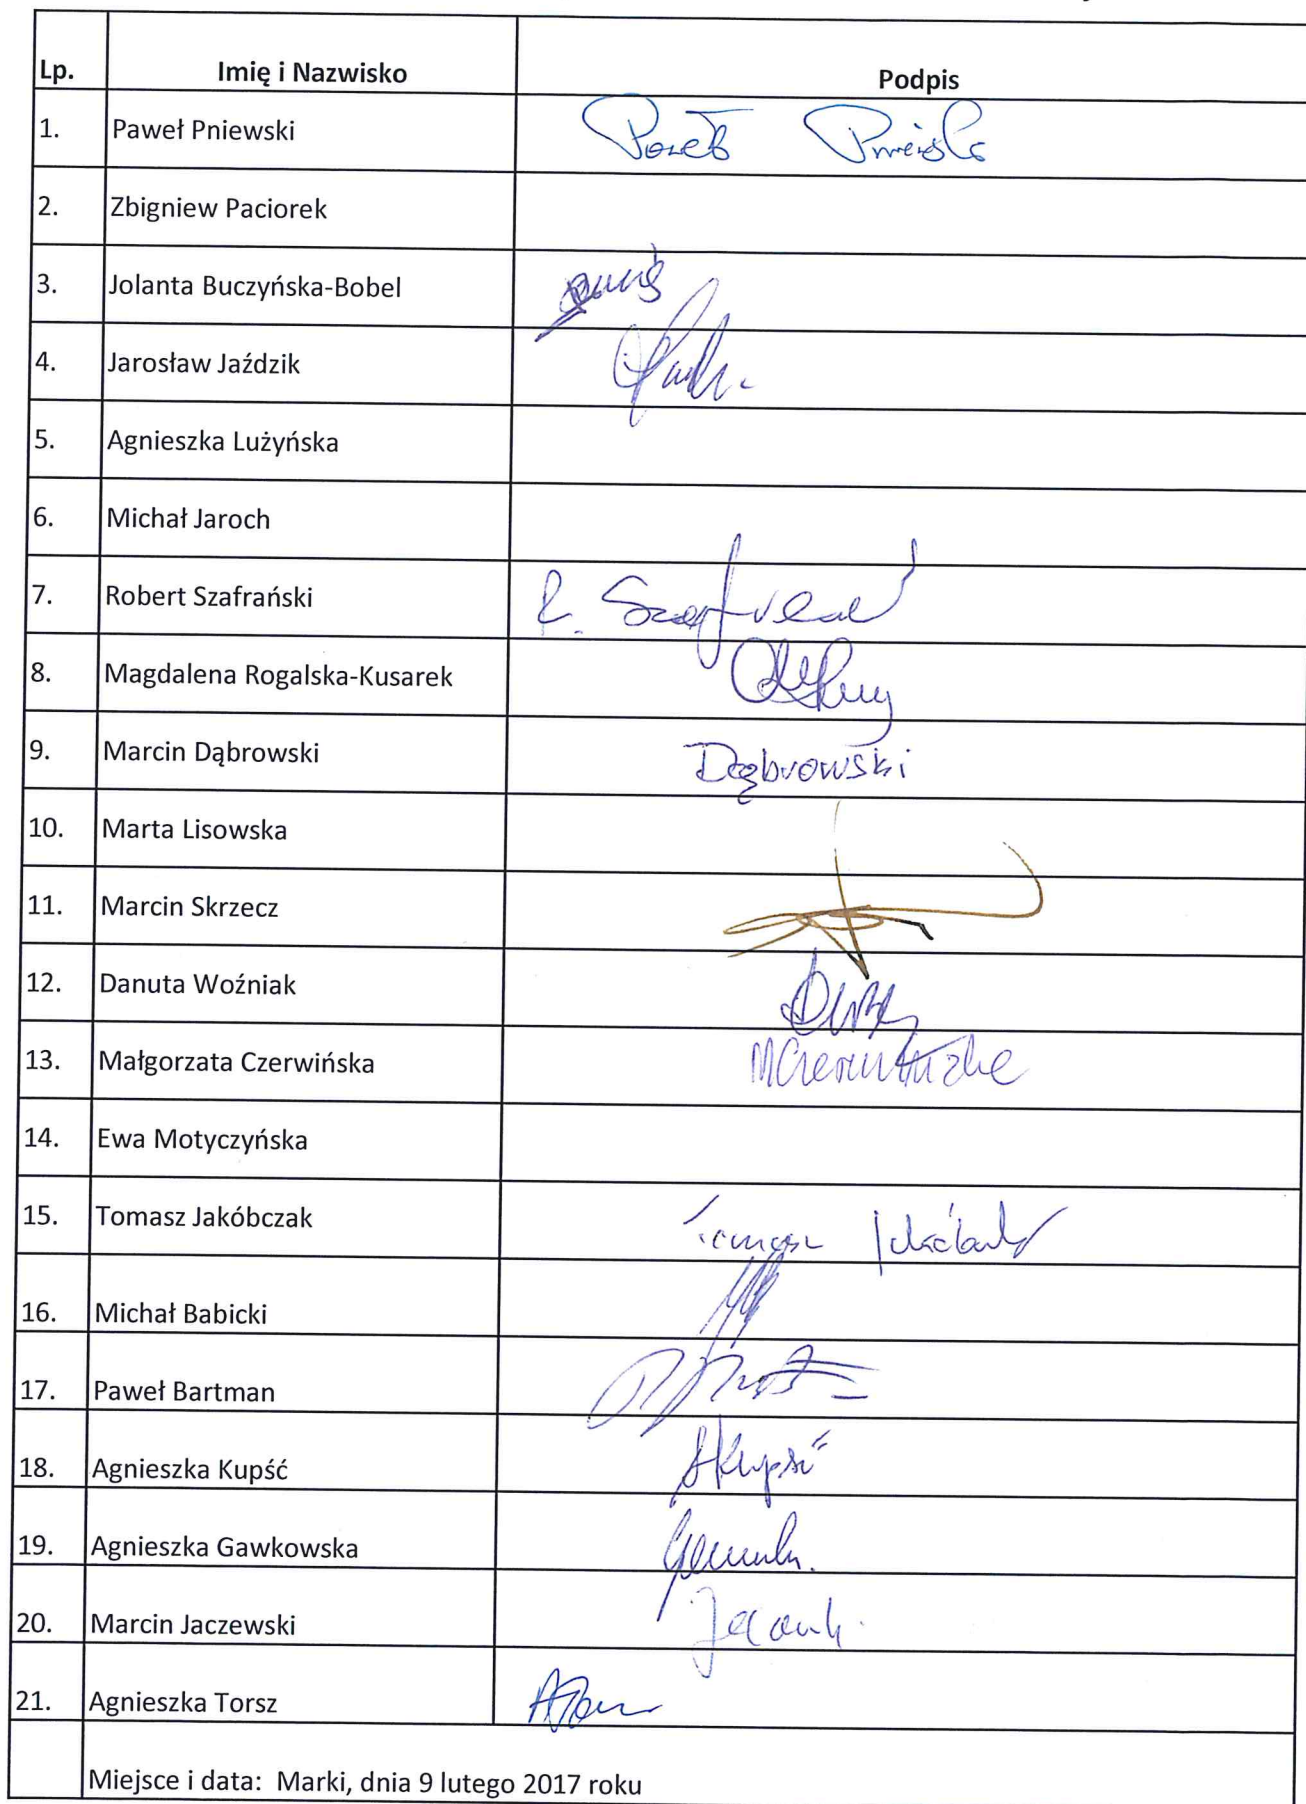 Lp. Imię i Nazwisko Podpis
1. Paweł Pniewski Paweł Pniewski
2. Zbigniew Paciorek
3. Jolanta Buczyńska-Bobel
4. Jarosław Jaździk
5. Agnieszka Lużyńska
6. Michał Jaroch
7. Robert Szafrański R. Szafrański
8. Magdalena Rogalska-Kusarek
9. Marcin Dąbrowski Dąbrowski
10. Marta Lisowska
11. Marcin Skrzecz
12. Danuta Woźniak
13. Małgorzata Czerwińska MCzerwińska
14. Ewa Motyczyńska
15. Tomasz Jakóbczak Tomasz Jakóbczak
16. Michał Babicki
17. Paweł Bartman
18. Agnieszka Kupść AKupść
19. Agnieszka Gawkowska
20. Marcin Jaczewski
21. Agnieszka Torsz
Miejsce i data: Marki, dnia 9 lutego 2017 roku